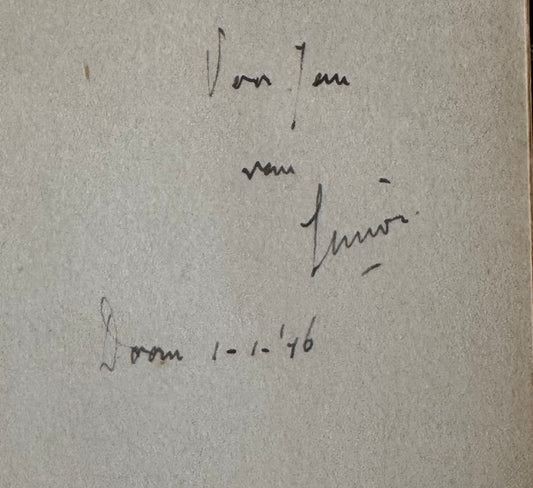 Voor Jan
van
Doorn 1-1-'46